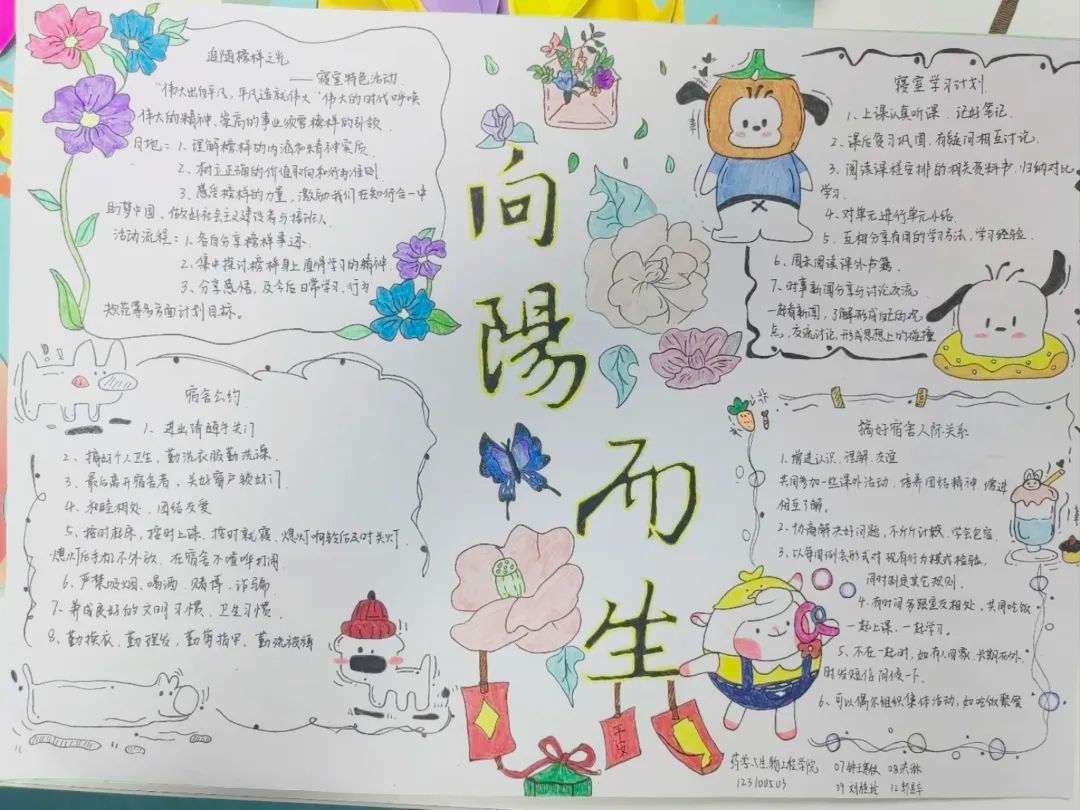 追随榜样之光
——寝室特色活动
“伟大出自平凡，平凡造就伟大”伟大的时代呼唤
伟大的精神，崇高的事业须需榜样的引领
目地：1、理解榜样的内涵和精神实质
2、树立正确的价值取向和行为准则
3、感受榜样的力量，激励我们在知行合一中
助梦中国，做好社会主义建设者与接班人
活动流程：1、各自分享榜样事迹
2、集中探讨榜样身上值得学习的精神
3、分享感悟，及今后日常学习、行为
规范等多方面计划目标。
宿舍公约
1、进出请随手关门
2、搞好个人卫生，勤洗衣服勤洗澡
3、最后离开宿舍者，关好窗户锁好门
4、和睦相处，团结友爱
5、按时起床，按时上课，按时就寝，熄灯响铃后及时关灯
熄灯后手机不外放，在宿舍不喧哗打闹
6、严禁吸烟、喝酒、赌博、诈骗
7、养成良好的文明习惯、卫生习惯
8、勤换衣、勤理发，勤剪指甲、勤洗被褥
向陽而生
平安
寝室学习计划
1、上课认真听课，记好笔记
2、课后复习巩固，有疑问相互讨论
3、阅读课程安排的相关资料书，归纳对比
学习
4、对单元进行单元小结
5、互相分享有用的学习方法，学习经验
6、周末阅读课外书籍
7、时事新闻分享分讨论交流
一起看新闻，了解形成自己的观
点，交流讨论，形成思想上的碰撞
搞好宿舍人际关系
1、增进认识、理解、友谊
共同参加一些课外活动，培养团结精神，增进
相互了解。
2、协商解决好问题，不斤斤计较，学会包容
3、以每周例会形式对现有行为模式检验，
同时制定其它规则。
4、有时间多跟室友相处，共同吃饭
一起上课、一起学习。
5、不在一起时，如有人回家，长期在外
时发短信问候一下
6、可以偶尔组织集体活动，如吃饭聚餐
药学与生物工程学院
123100503
07 08
09 12